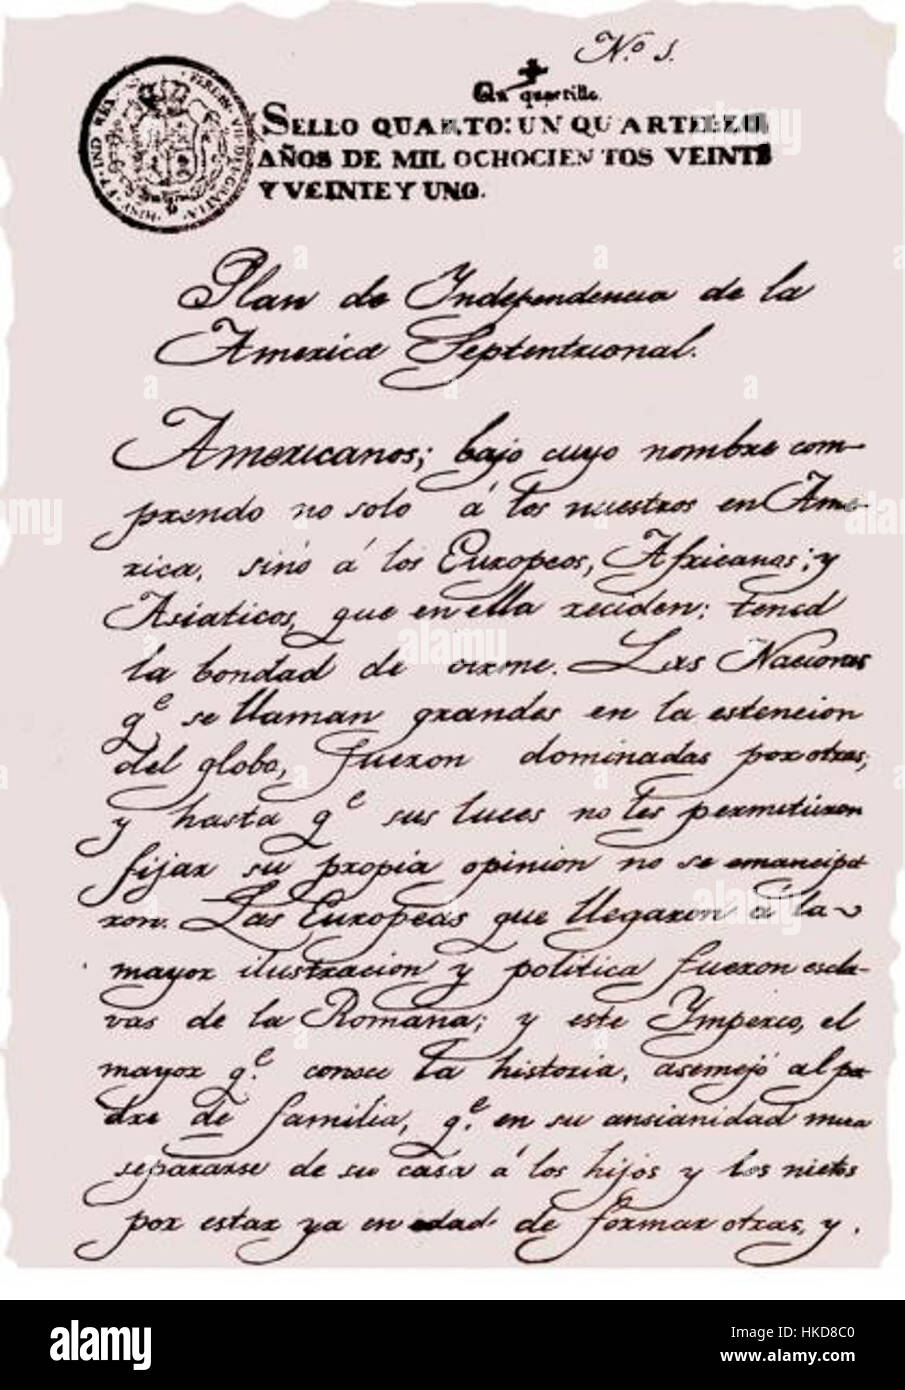 N.º 1.
Un quartillo.
HISP. ET IND. REX
FERDIN. VII. DEI GRATIA
SELLO QUARTO: UN QUARTILLO,
AÑOS DE MIL OCHOCIENTOS VEINTE
Y VEINTE Y UNO.
Plan de Independencia de la
America Septentrional.
Americanos; bajo cuyo nombre com-
prendo no solo á los nuestros en Ame-
rica, sinó á los Europeos, Africanos; y
Asiaticos, que en ella reciden: tened
la bondad de oirme. Las Naciones
q.e se llaman grandes en la estencion
del globo, fueron dominadas por otras;
y hasta q.e sus luces no les permitieron
fijar su propia opinion no se emancipa
ron. Las Europeas que llegaron á la
mayor ilustracion y politica fueron escla-
vas de la Romana; y este Ymperio, el
mayor q.e conoce la historia, asemejó al pa-
dre de familia, q.e en su ansianidad mira
separarse de su casa á los hijos y los nietos
por estar ya en edad de formar otras, y
alamy
Image ID: HKD8C0
www.alamy.com